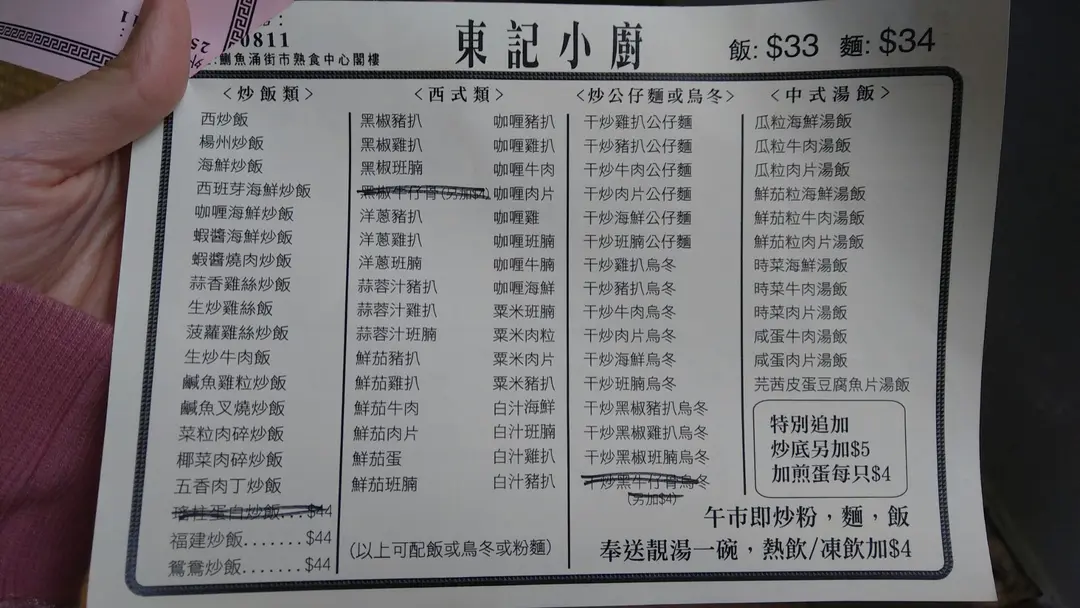 0811
鰂魚涌街市熟食中心閣樓
東記小廚
飯: $33 麵: $34
<炒飯類>
西炒飯
楊州炒飯
海鮮炒飯
西班芽海鮮炒飯
咖喱海鮮炒飯
蝦醬海鮮炒飯
蝦醬燒肉炒飯
蒜香雞絲炒飯
生炒雞絲飯
菠蘿雞絲炒飯
生炒牛肉飯
鹹魚雞粒炒飯
鹹魚叉燒炒飯
菜粒肉碎炒飯
椰菜肉碎炒飯
五香肉丁炒飯
瑤柱蛋白炒飯...$44
福建炒飯.......$44
鴛鴦炒飯.......$44
<西式類>
黑椒豬扒 咖喱豬扒
黑椒雞扒 咖喱雞扒
黑椒班腩 咖喱牛肉
黑椒牛仔骨(另加$4) 咖喱肉片
洋蔥豬扒 咖喱雞
洋蔥雞扒 咖喱班腩
洋蔥班腩 咖喱牛腩
蒜蓉汁豬扒 咖喱海鮮
蒜蓉汁雞扒 粟米班腩
蒜蓉汁班腩 粟米肉粒
鮮茄豬扒 粟米肉片
鮮茄雞扒 粟米豬扒
鮮茄牛肉 白汁海鮮
鮮茄肉片 白汁班腩
鮮茄蛋 白汁雞扒
鮮茄班腩 白汁豬扒
(以上可配飯或烏冬或粉麵)
<炒公仔麵或烏冬>
干炒雞扒公仔麵
干炒豬扒公仔麵
干炒牛肉公仔麵
干炒肉片公仔麵
干炒海鮮公仔麵
干炒班腩公仔麵
干炒雞扒烏冬
干炒豬扒烏冬
干炒牛肉烏冬
干炒肉片烏冬
干炒海鮮烏冬
干炒班腩烏冬
干炒黑椒豬扒烏冬
干炒黑椒雞扒烏冬
干炒黑椒班腩烏冬
干炒黑牛仔骨烏冬
(另加$4)
<中式湯飯>
瓜粒海鮮湯飯
瓜粒牛肉湯飯
瓜粒肉片湯飯
鮮茄粒海鮮湯飯
鮮茄粒牛肉湯飯
鮮茄粒肉片湯飯
時菜海鮮湯飯
時菜牛肉湯飯
時菜肉片湯飯
咸蛋牛肉湯飯
咸蛋肉片湯飯
芫茜皮蛋豆腐魚片湯飯
特別追加
炒底另加$5
加煎蛋每只$4
午市即炒粉，麵，飯
奉送靚湯一碗，熱飲/凍飲加$4